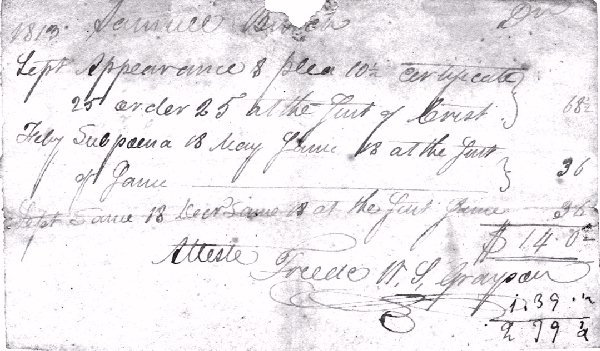 1813 Samuel Dr
Sept Appearance & plea 10½ certificate
25 order 25 at the Suit of Crist } 68½
Feby Subpoena 18 May Same 18 at the Suit
of Same } 36
Sept Same 18 Decr Same 18 at the Suit Same 36
$ 1 4 0½
Atteste Teste W. S. Grayson
1.39.½
2 79 ½